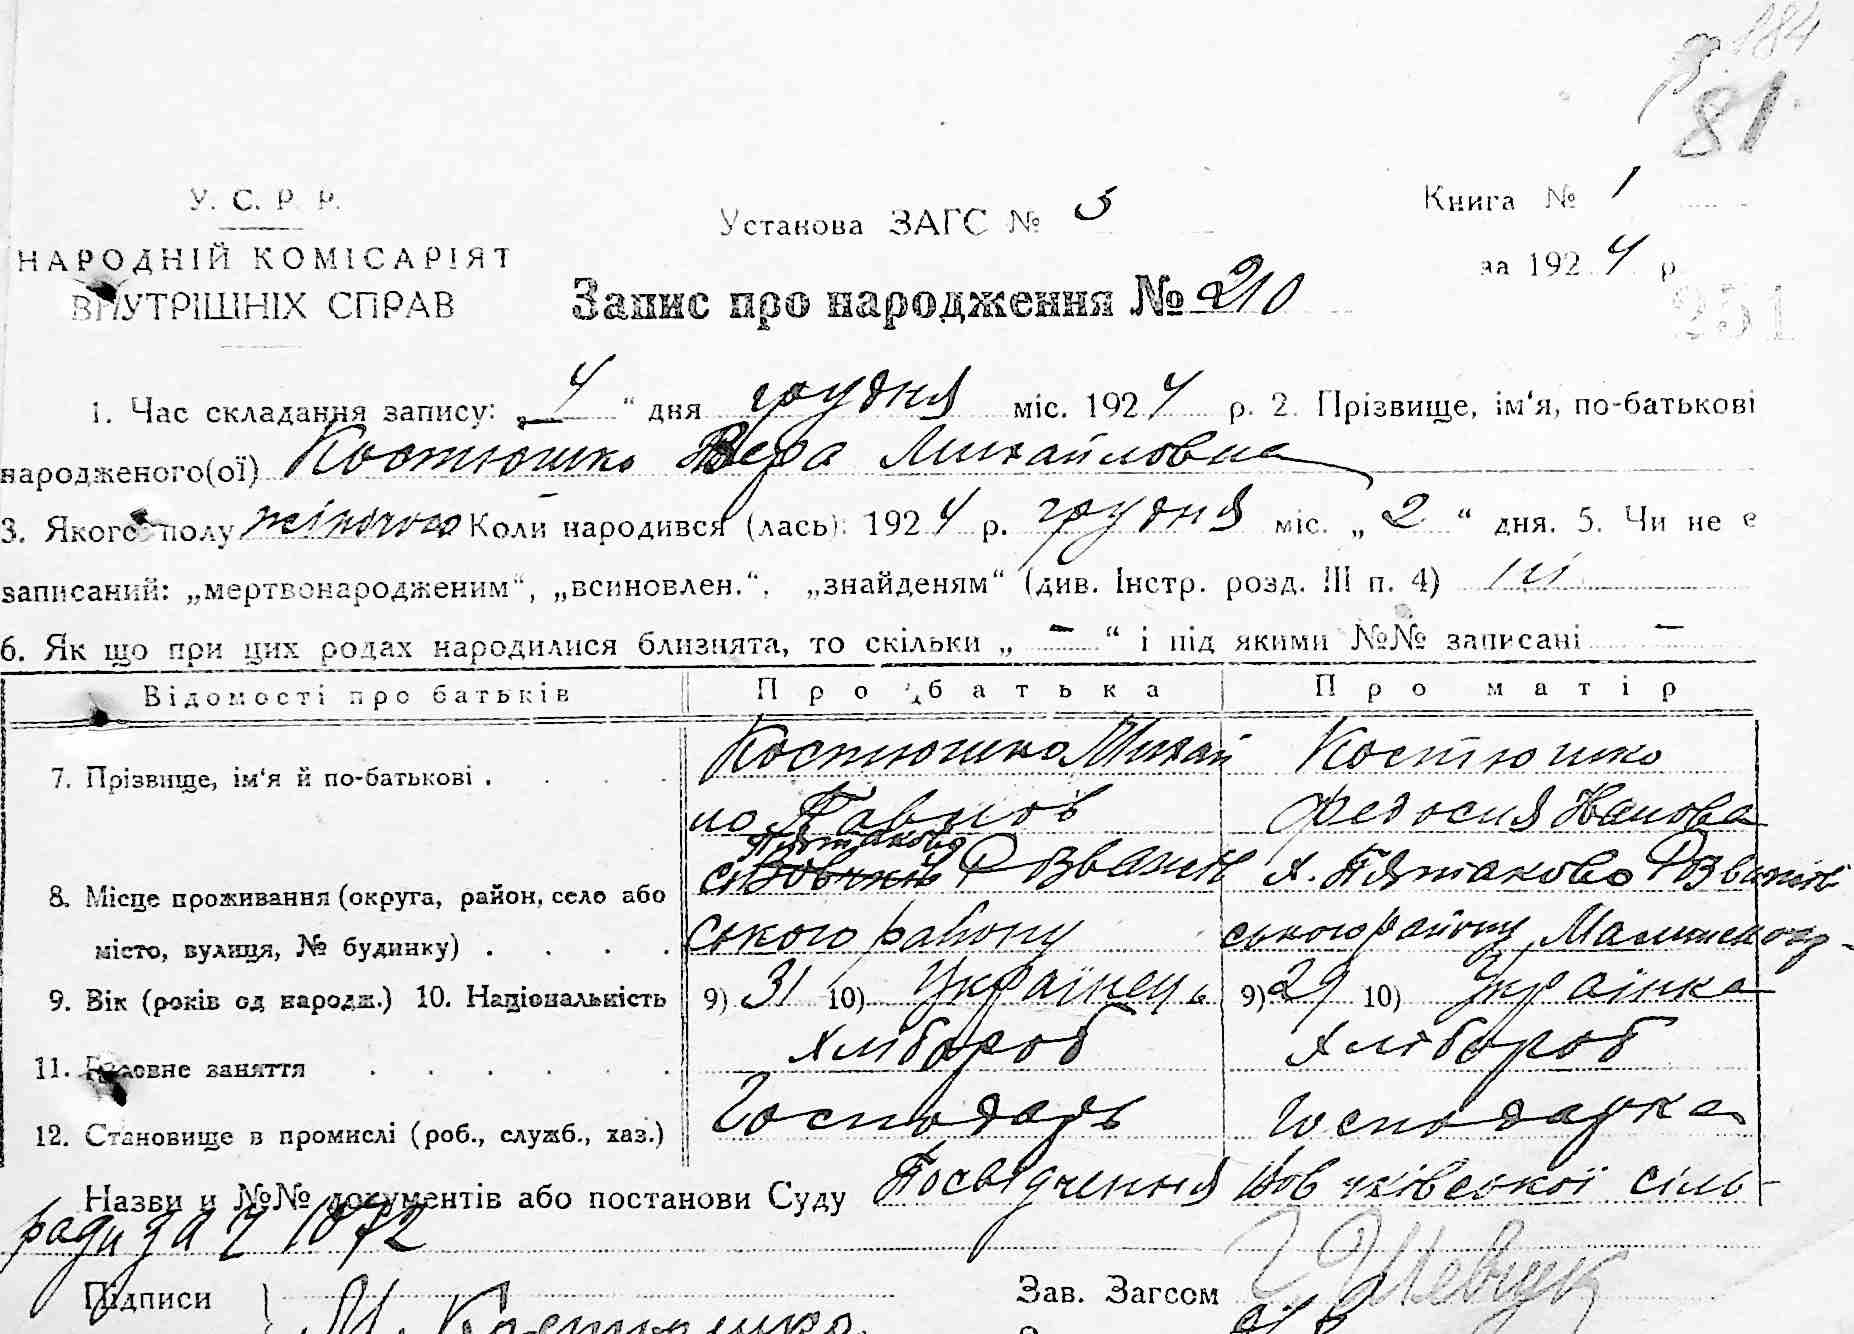 184
81
У. С. Р. Р.
НАРОДНІЙ КОМІСАРІЯТ
ВНУТРІШНІХ СПРАВ
Установа ЗАГС № 3
Книга № 1
за 1924 р
251
Запис про народження № 210
1. Час складання запису: „4“ дня грудня міс. 1924 р. 2. Прізвище, ім‘я, по-батькові
народженого(ої) Костюшко Вера Михайловна
3. Якого полу жіночого Коли народився (лась): 1924 р. грудня міс. „2“ дня. 5. Чи не є
записаний: „мертвонародженим“, „всиновлен.“, „знайденям“ (див. Інстр. розд. III п. 4) ні
6. Як що при цих родах народилися близнята, то скільки „ — “ і під якими №№ записані —
Відомості про батьків Про батька Про матір
7. Прізвище, ім‘я й по-батькові . Костюшко Михай Костюшко
ло Павлов Федосия Иванова
8. Місце проживання (округа, район, село або Пятаково Розважів х. Пятаково Розважів
місто, вулиця, № будинку) . ського району ського району Малинск окр-
9. Вік (років од народж.) 10. Національність 9) 31 10) Українець 9) 29 10) Українка
11. Головне заняття хлібороб хлібороб
12. Становище в промислі (роб., служб., хаз.) Господарь Господарка
Назви и №№ документів або постанови Суду Посвідчення Вовчківської сіль-
ради за ч 1072
Підписи Зав. Загсом Шевчук
М. Костюшко